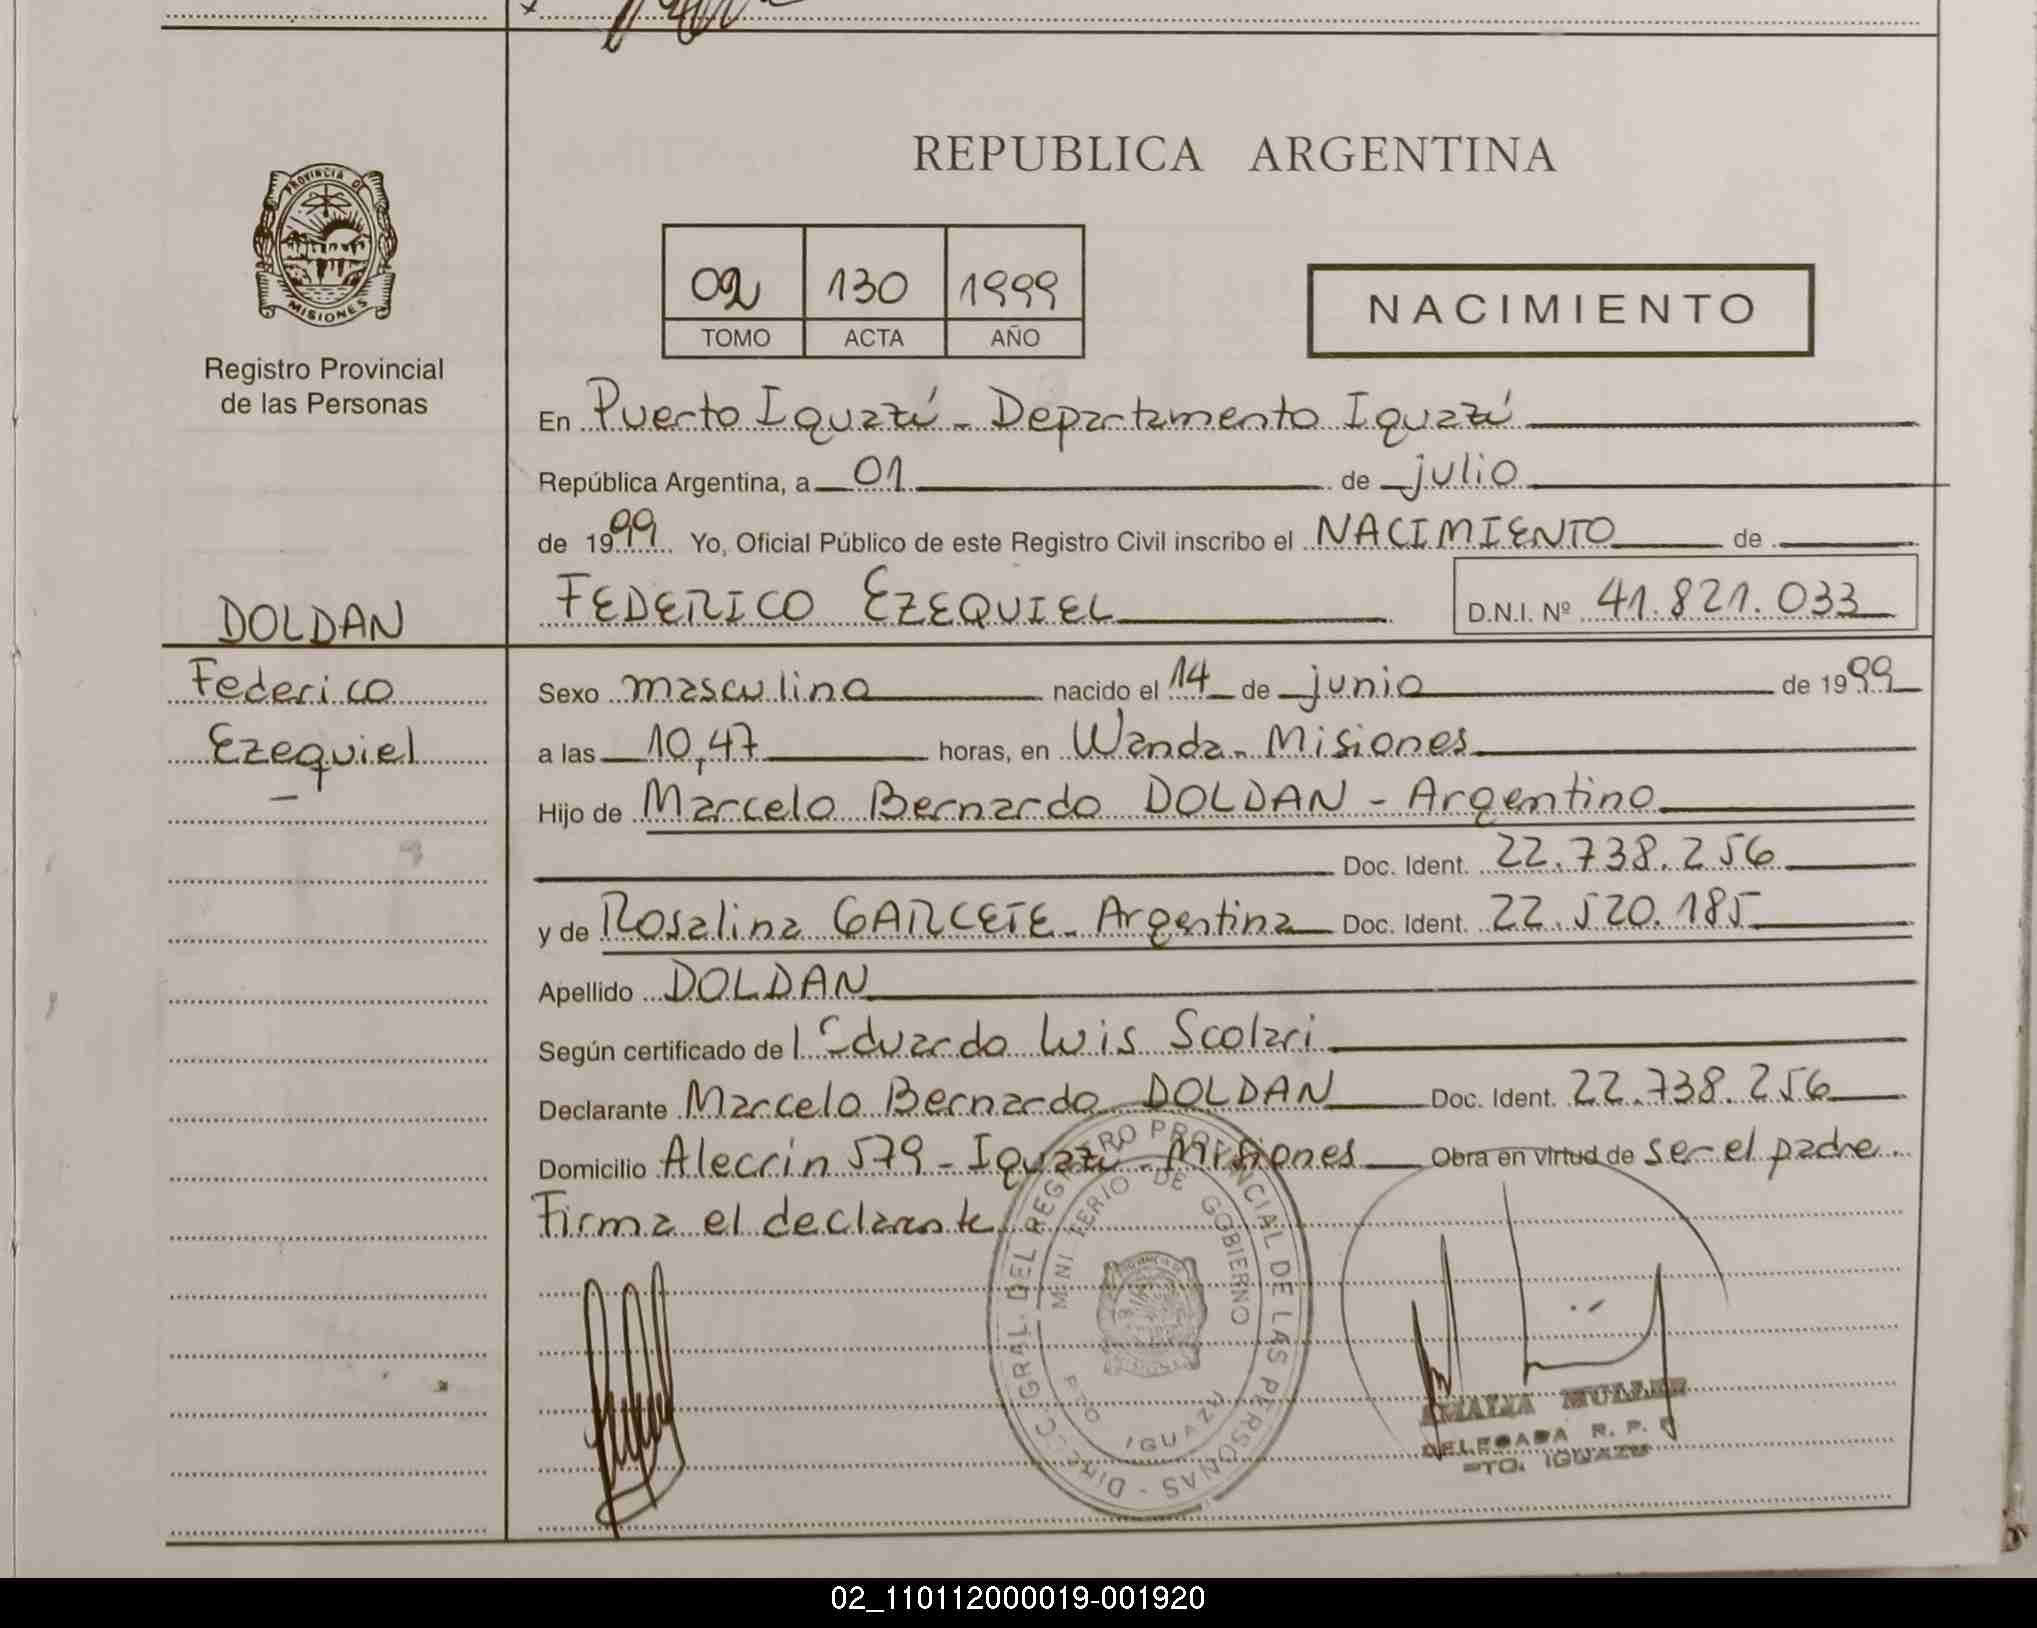 REPUBLICA ARGENTINA
PROVINCIA DE
MISIONES
Registro Provincial
de las Personas
02 130 1999
TOMO ACTA AÑO
NACIMIENTO
En Puerto Iguazú - Departamento Iguazú
República Argentina, a 01 de julio
de 1999 Yo, Oficial Público de este Registro Civil inscribo el NACIMIENTO de
FEDERICO EZEQUIEL D.N.I. Nº 41.821.033
DOLDAN
Federico
Ezequiel
Sexo masculino nacido el 14 de junio de 1999
a las 10,47 horas, en Wanda - Misiones
Hijo de Marcelo Bernardo DOLDAN - Argentino
Doc. Ident. 22.738.256
y de Rosalina GARCETE - Argentina Doc. Ident. 22.520.185
Apellido DOLDAN
Según certificado de Eduardo Luis Scolari
Declarante Marcelo Bernardo DOLDAN Doc. Ident. 22.738.256
Domicilio Alecrin 579 - Iguazú - Misiones Obra en virtud de ser el padre
Firma el declarante
DIRECC. GRAL. DEL REGISTRO PROVINCIAL DE LAS PERSONAS -
MINISTERIO DE GOBIERNO
PTO IGUAZU
AMALIA MULLER
DELEGADA R. P. P
PTO. IGUAZU
02_110112000019-001920